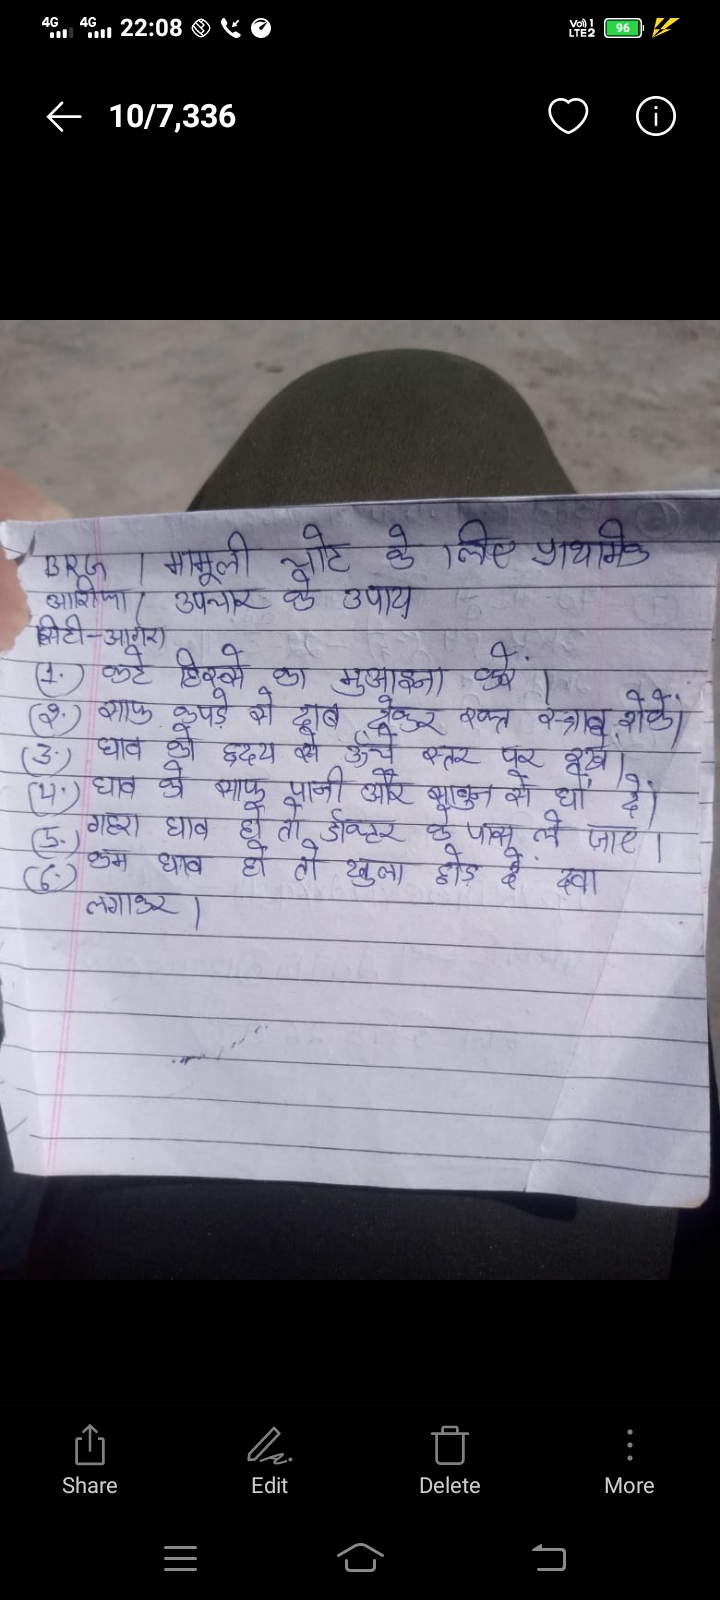 4G 4G 22:08 Vo)) 1 LTE2 96
10/7,336
BRG / मामूली चोट के लिए प्राथमिक
उपचार के उपाय
सिटी-आगरा
(1.) कटे हिस्से का मुआइना करें।
(2.) साफ कपड़े से दाब देकर रक्त स्त्राव रोकें।
(3.) घाव को हृदय से ऊँचे स्तर पर रखें।
(4.) घाव को साफ पानी और साबुन से धो दें।
(5.) गहरा घाव हो तो डॉक्टर के पास ले जाए।
(6.) कम घाव हो तो खुला छोड़ दे दवा
लगाकर।
Share Edit Delete More